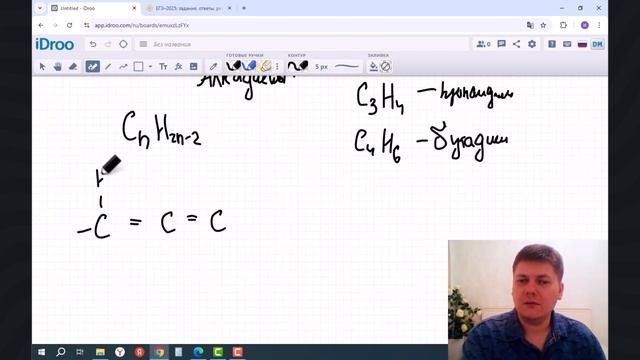 Untitled - iDroo
ЕГЭ-2025: задания, ответы, р
app.idroo.com/ru/boards/emuxzLzFYx
iDroo
Без названия
0
DM
ГОТОВЫЕ РУЧКИ
КОНТУР
ЗАЛИВКА
5 px
Алкадиены
CnH2n-2
C3H4 – пропадиен
C4H6 – бутадиен
–C = C = C